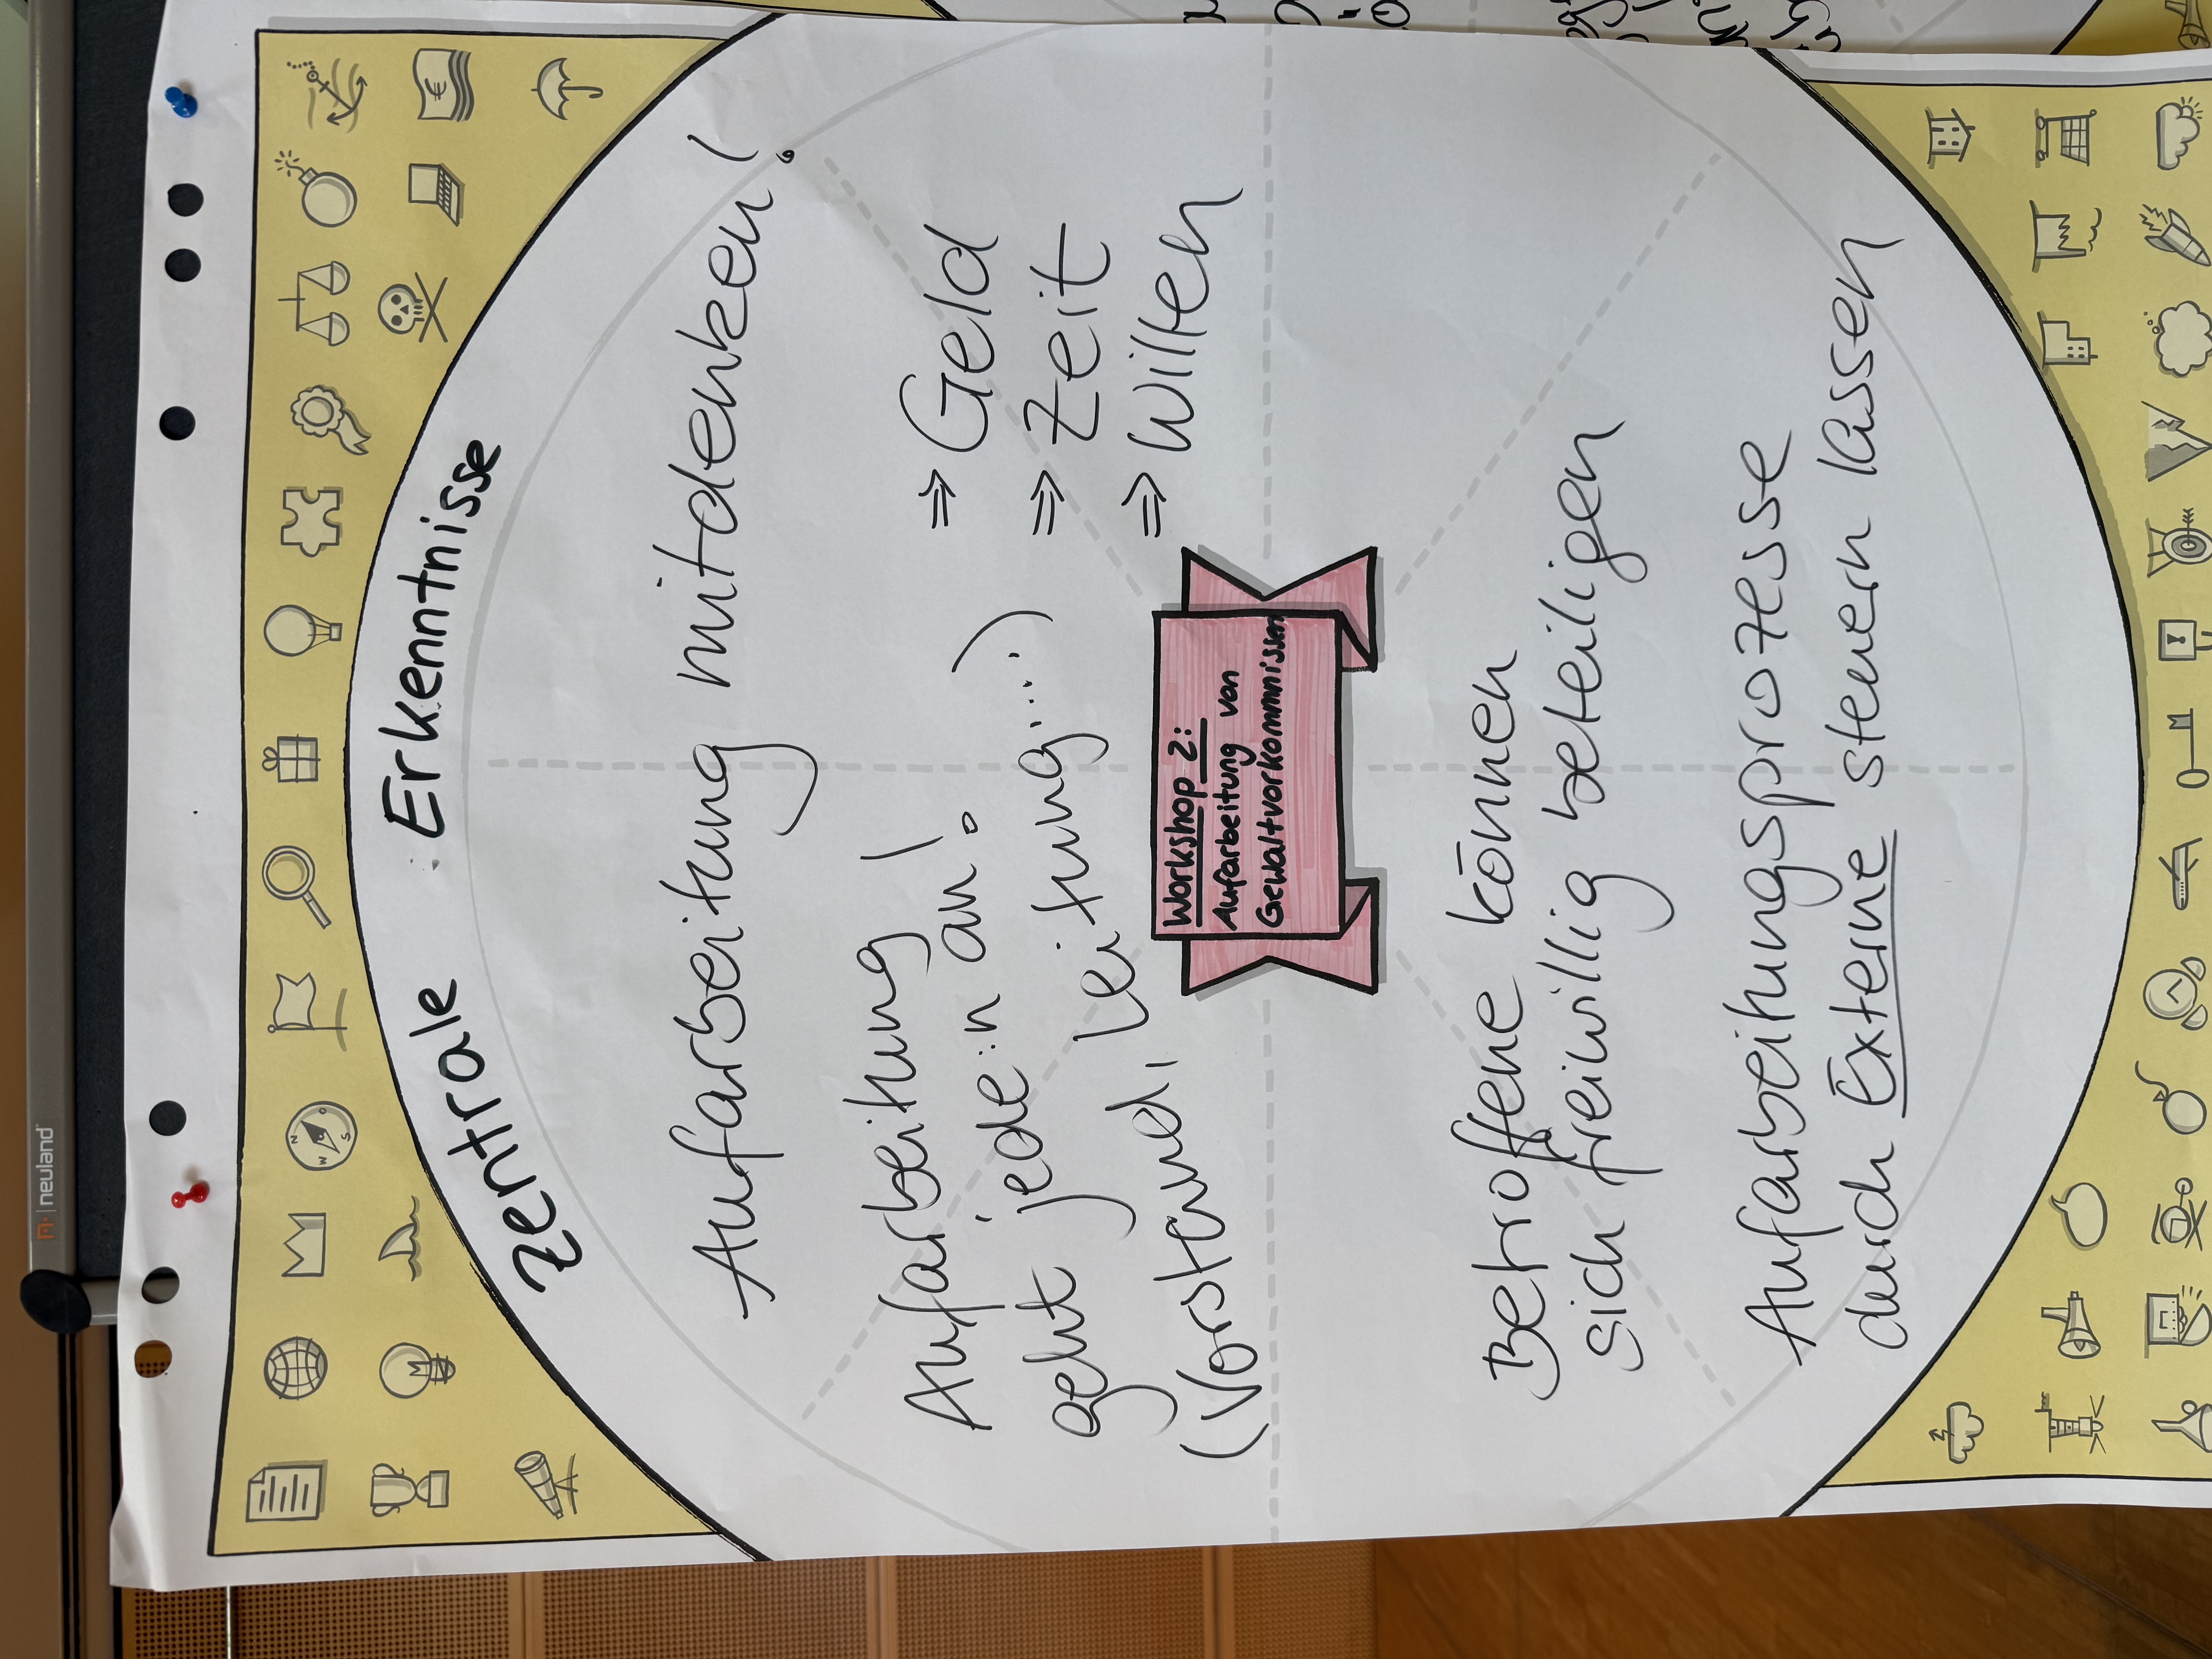 neuland
Zentrale Erkenntnisse
Aufarbeitung mitdenken!
Aufarbeitung
geht jede:n an!
(Vorstand, Leitung,...)
⇒ Geld
⇒ Zeit
⇒ Willen
Workshop 2:
Aufarbeitung von
Gewaltvorkommnissen
Betroffene können
sich freiwillig beteiligen
Aufarbeitungsprozesse
durch Externe steuern lassen